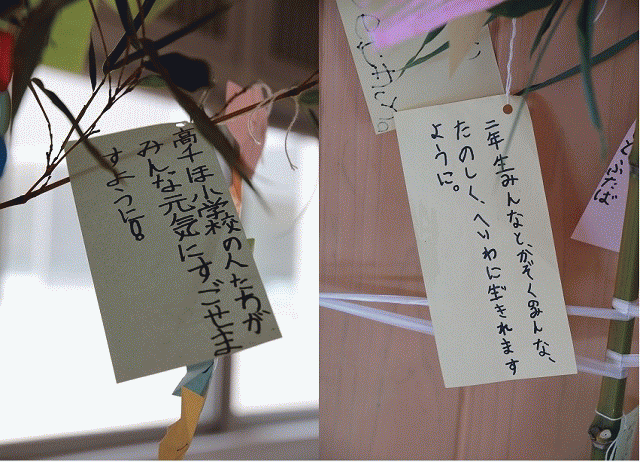 高千ほ小学校の人たちが
みんな元気にすごせま
すように。
二年生みんなと、かぞくのみんな、
たのしく、へいわに生きれます
ように。
とふたば